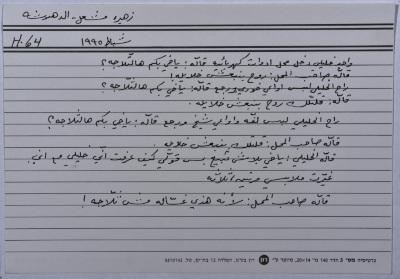 زهيره مشعل - الدهيشه
شباط ١٩٩٥
H.64
واحد خليلي دخل محل ادوات كهربائيه قاله: ياخي بكم هالثلاجه؟
قاله صاحب المحل: روح بنبعش خلايله!
راح الخليلي لبس اواعي خوري ورجع قاله: ياخي بكم هالثلاجه؟
قاله: قلتلك روح بنبعش خلايله.
راح الخليلي لبس لفه واواعي شيخ ورجع قاله: ياخي بكم هالثلاجه؟
قاله صاحب المحل: قلتلك بنبعش خلايله
قاله الخليلي: ياخي بلاش تبيع بس قولي كيف عرفت اني خليلي مع اني
غيرت ملابسي مرتين ثلاثه
قاله صاحب المحل: لأنه هذي غساله مش ثلاجه!